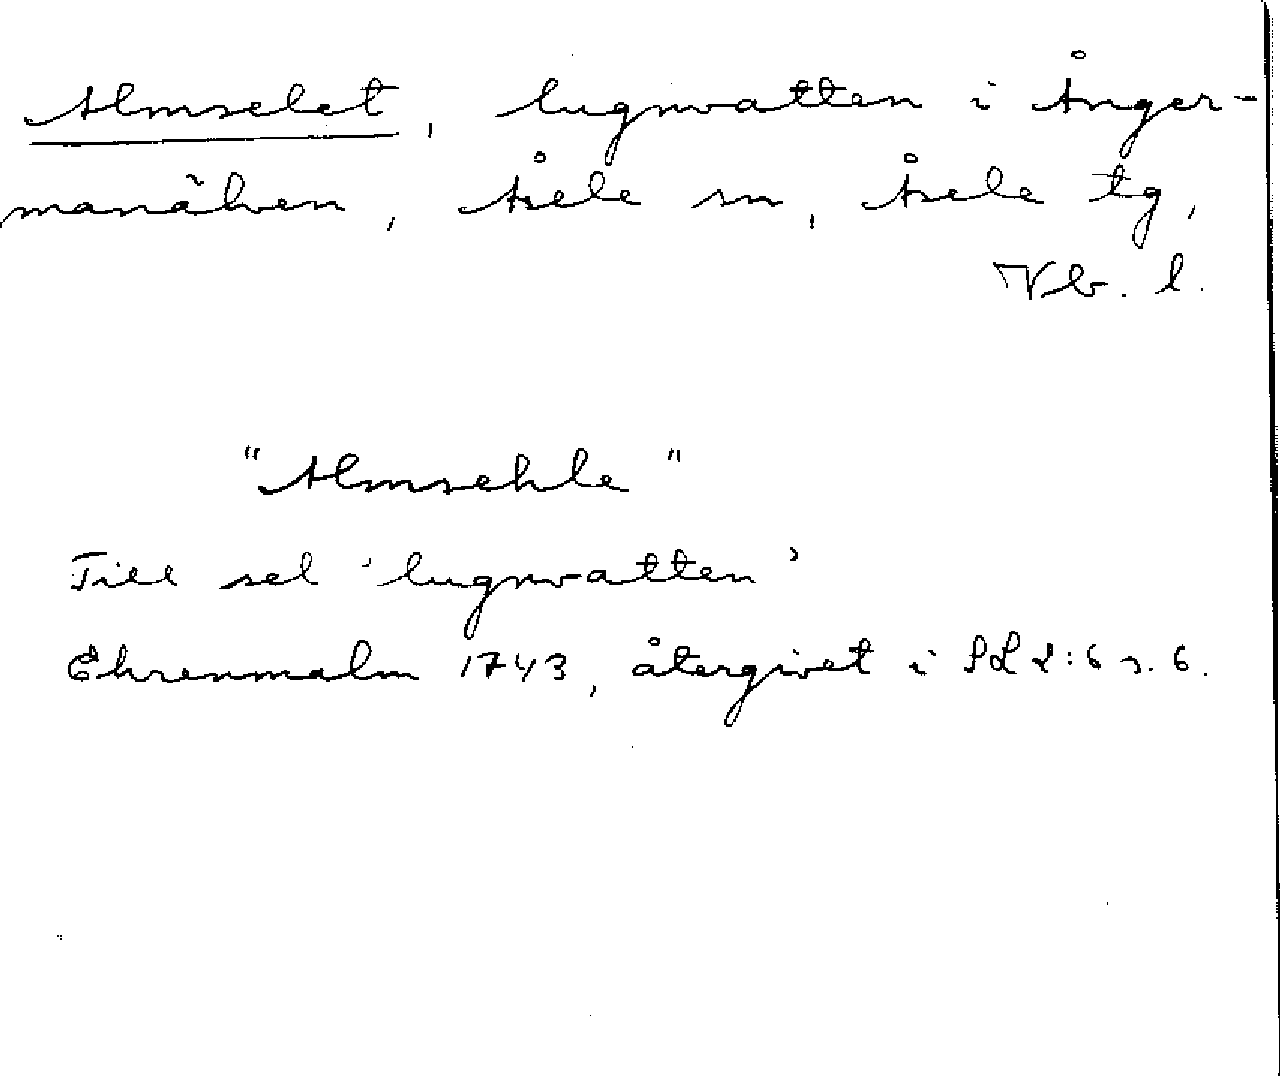 Almselet, lugnvatten i Ånger-
manälven, Åsele sn, Åsele tg,
Vb. l.
"Almsehle"
Till sel 'lugnvatten'
Ehrenmalm 1743, återgivet i SL 2:6 s. 6.